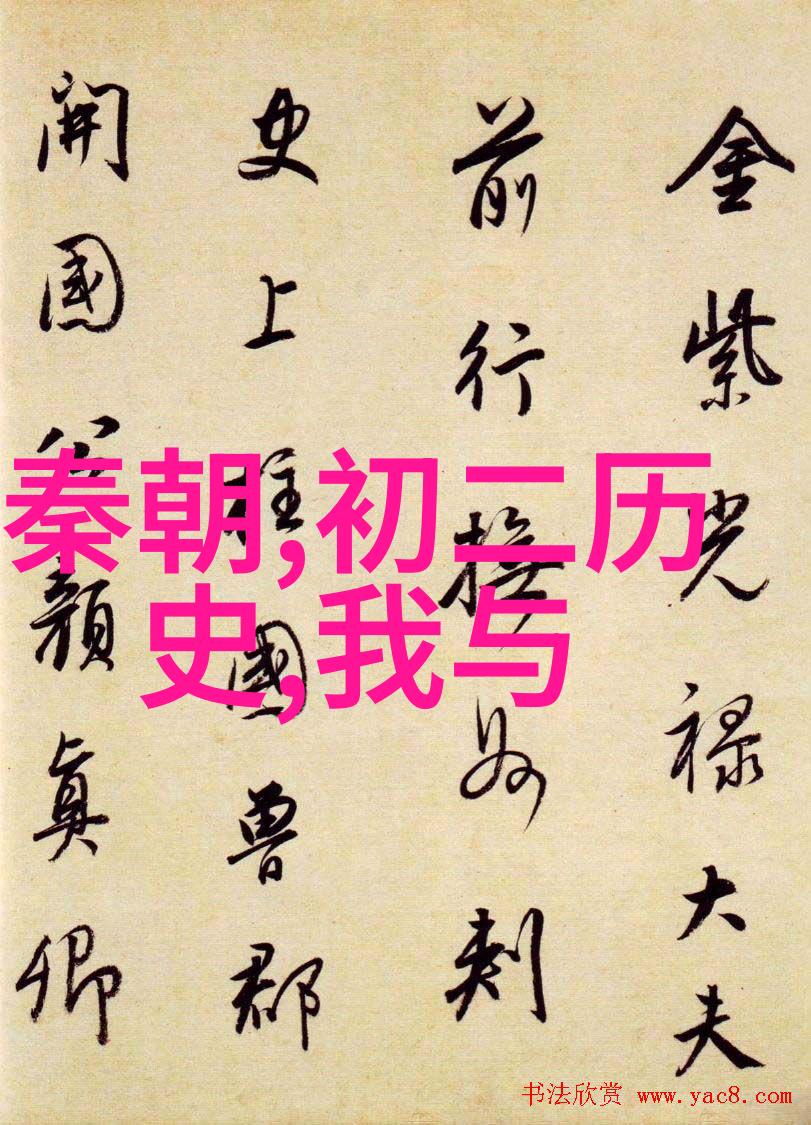 金紫光禄大夫
前行撫州刺
史上柱國魯郡
開國公顏真卿
秦朝,初二历
史,我与
书法欣赏 www.yac8.com